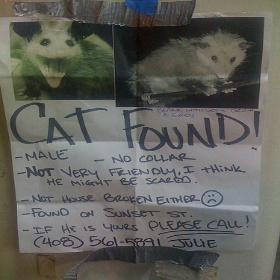 CAT FOUND!
- MALE - NO COLLAR
- NOT VERY FRIENDLY, I THINK
HE MIGHT BE SCARED.
- NOT HOUSE BROKEN EITHER
- FOUND ON SUNSET ST.
- IF HE IS YOURS PLEASE CALL!
(408) 561-5891 JULIE